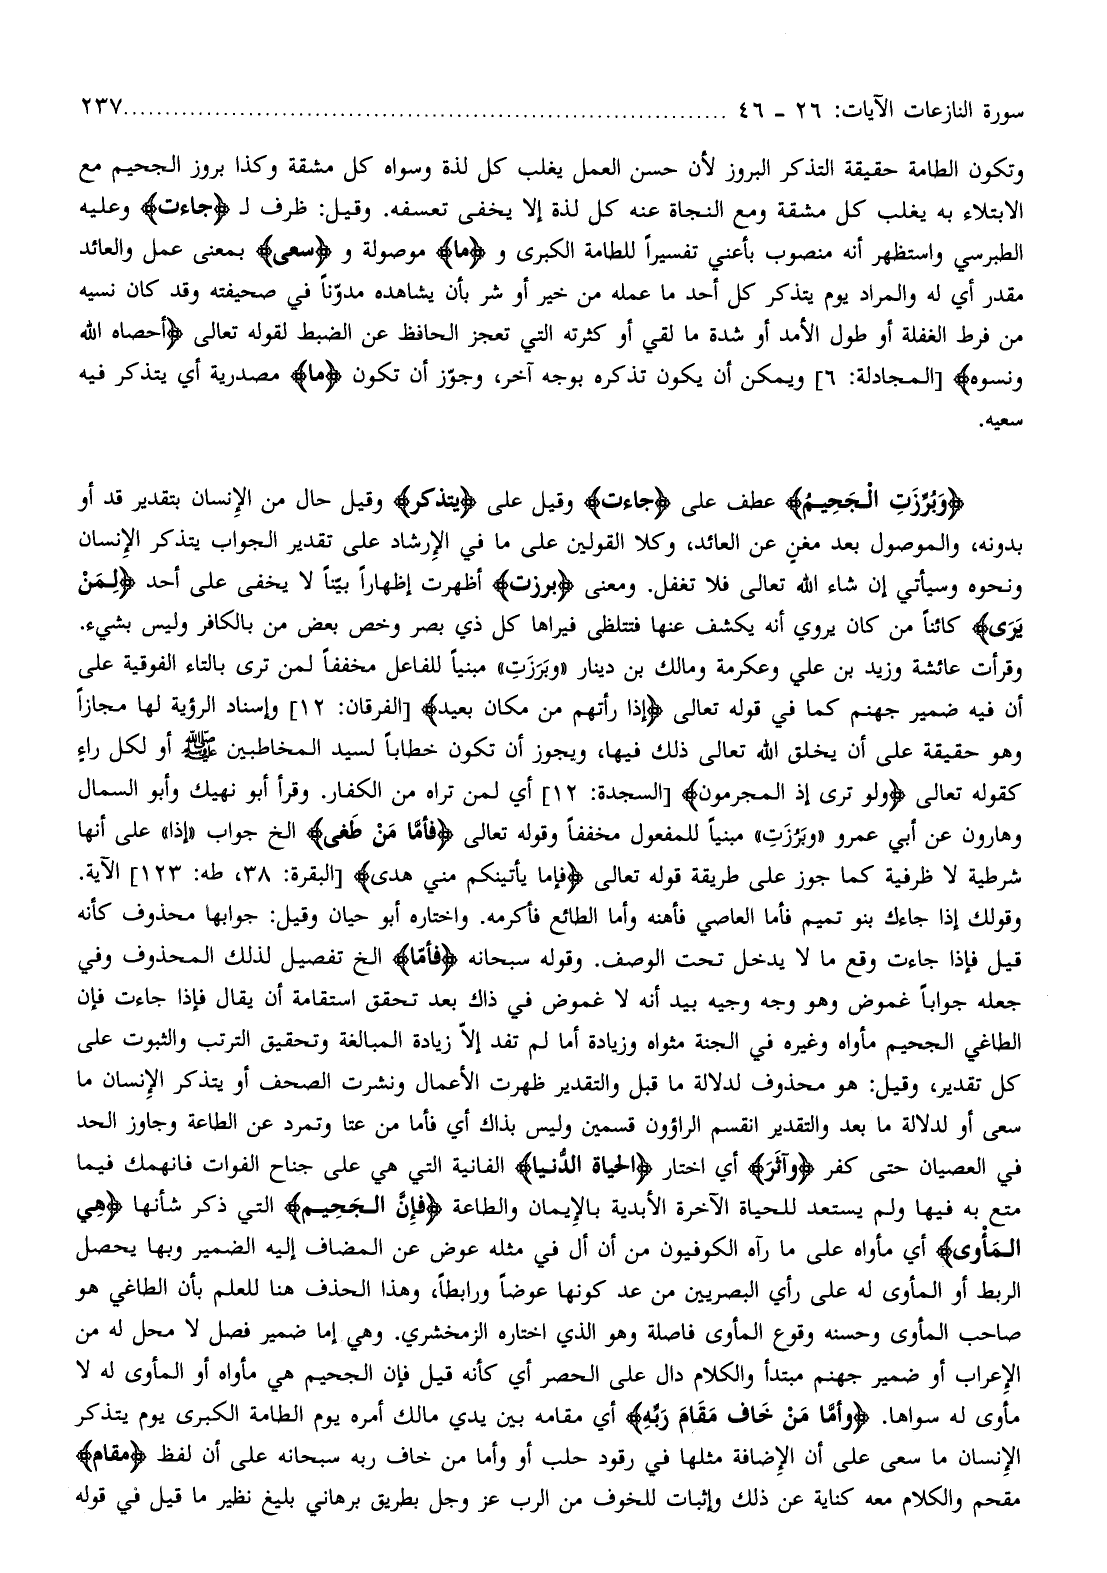 سورة النازعات الآيات: ٢٦ ـ ٤٦ ........................................................................ ٢٣٧
وتكون الطامة حقيقة التذكر البروز لأن حسن العمل يغلب كل لذة وسواه كل مشقة وكذا بروز الجحيم مع
الابتلاء به يغلب كل مشقة ومع النجاة عنه كل لذة إلا يخفى تعسفه. وقيل: ظرف لـ ﴿جاءت﴾ وعليه
الطبرسي واستظهر أنه منصوب بأعني تفسيراً للطامة الكبرى و ﴿ما﴾ موصولة و ﴿سعى﴾ بمعنى عمل والعائد
مقدر أي له والمراد يوم يتذكر كل أحد ما عمله من خير أو شر بأن يشاهده مدوّناً في صحيفته وقد كان نسيه
من فرط الغفلة أو طول الأمد أو شدة ما لقي أو كثرته التي تعجز الحافظ عن الضبط لقوله تعالى ﴿أحصاه الله
ونسوه﴾ [المجادلة: ٦] ويمكن أن يكون تذكره بوجه آخر، وجوّز أن تكون ﴿ما﴾ مصدرية أي يتذكر فيه
سعيه.
﴿وَبُرِّزَتِ الْجَحِيمُ﴾ عطف على ﴿جاءت﴾ وقيل على ﴿يتذكر﴾ وقيل حال من الإِنسان بتقدير قد أو
بدونه، والموصول بعد مغنٍ عن العائد، وكلا القولين على ما في الإِرشاد على تقدير الجواب يتذكر الإنسان
ونحوه وسيأتي إن شاء الله تعالى فلا تغفل. ومعنى ﴿برزت﴾ أظهرت إظهاراً بيّناً لا يخفى على أحد ﴿لِمَنْ
يَرَى﴾ كائناً من كان يروي أنه يكشف عنها فتتلظى فيراها كل ذي بصر وخص بعض من بالكافر وليس بشيء.
وقرأت عائشة وزيد بن علي وعكرمة ومالك بن دينار «وبَرَزَتِ» مبنياً للفاعل مخففاً لمن ترى بالتاء الفوقية على
أن فيه ضمير جهنم كما في قوله تعالى ﴿إذا رأتهم من مكان بعيد﴾ [الفرقان: ١٢] وإسناد الرؤية لها مجازاً
وهو حقيقة على أن يخلق الله تعالى ذلك فيها، ويجوز أن تكون خطاباً لسيد المخاطبين ﷺ أو لكل راءٍ
كقوله تعالى ﴿ولو ترى إذ المجرمون﴾ [السجدة: ١٢] أي لمن تراه من الكفار. وقرأ أبو نهيك وأبو السمال
وهارون عن أبي عمرو «وبَرُزَتِ» مبنياً للمفعول مخففاً وقوله تعالى ﴿فأمَّا مَنْ طَغى﴾ الخ جواب «إذا» على أنها
شرطية لا ظرفية كما جوز على طريقة قوله تعالى ﴿فإما يأتينكم مني هدى﴾ [البقرة: ٣٨، طه: ١٢٣] الآية.
وقولك إذا جاءك بنو تميم فأما العاصي فأهنه وأما الطائع فأكرمه. واختاره أبو حيان وقيل: جوابها محذوف كأنه
قيل فإذا جاءت وقع ما لا يدخل تحت الوصف. وقوله سبحانه ﴿فأمّا﴾ الخ تفصيل لذلك المحذوف وفي
جعله جواباً غموض وهو وجه وجيه بيد أنه لا غموض في ذاك بعد تحقق استقامة أن يقال فإذا جاءت فإن
الطاغي الجحيم مأواه وغيره في الجنة مثواه وزيادة أما لم تفد إلاّ زيادة المبالغة وتحقيق الترتب والثبوت على
كل تقدير، وقيل: هو محذوف لدلالة ما قبل والتقدير ظهرت الأعمال ونشرت الصحف أو يتذكر الإِنسان ما
سعى أو لدلالة ما بعد والتقدير انقسم الراؤون قسمين وليس بذاك أي فأما من عتا وتمرد عن الطاعة وجاوز الحد
في العصيان حتى كفر ﴿وآثَرَ﴾ أي اختار ﴿الحياة الدُّنيا﴾ الفانية التي هي على جناح الفوات فانهمك فيما
متع به فيها ولم يستعد للحياة الآخرة الأبدية بالإِيمان والطاعة ﴿فإنَّ الجَحيم﴾ التي ذكر شأنها ﴿هِي
المَأْوى﴾ أي مأواه على ما رآه الكوفيون من أن أل في مثله عوض عن المضاف إليه الضمير وبها يحصل
الربط أو المأوى له على رأي البصريين من عد كونها عوضاً ورابطاً، وهذا الحذف هنا للعلم بأن الطاغي هو
صاحب المأوى وحسنه وقوع المأوى فاصلة وهو الذي اختاره الزمخشري. وهي إما ضمير فصل لا محل له من
الإِعراب أو ضمير جهنم مبتدأ والكلام دال على الحصر أي كأنه قيل فإن الجحيم هي مأواه أو المأوى له لا
مأوى له سواها. ﴿وأمَّا مَنْ خَاف مَقَامَ رَبِّهِ﴾ أي مقامه بين يدي مالك أمره يوم الطامة الكبرى يوم يتذكر
الإنسان ما سعى على أن الإِضافة مثلها في رقود حلب أو وأما من خاف ربه سبحانه على أن لفظ ﴿مقام﴾
مقحم والكلام معه كناية عن ذلك وإثبات للخوف من الرب عز وجل بطريق برهاني بليغ نظير ما قيل في قوله